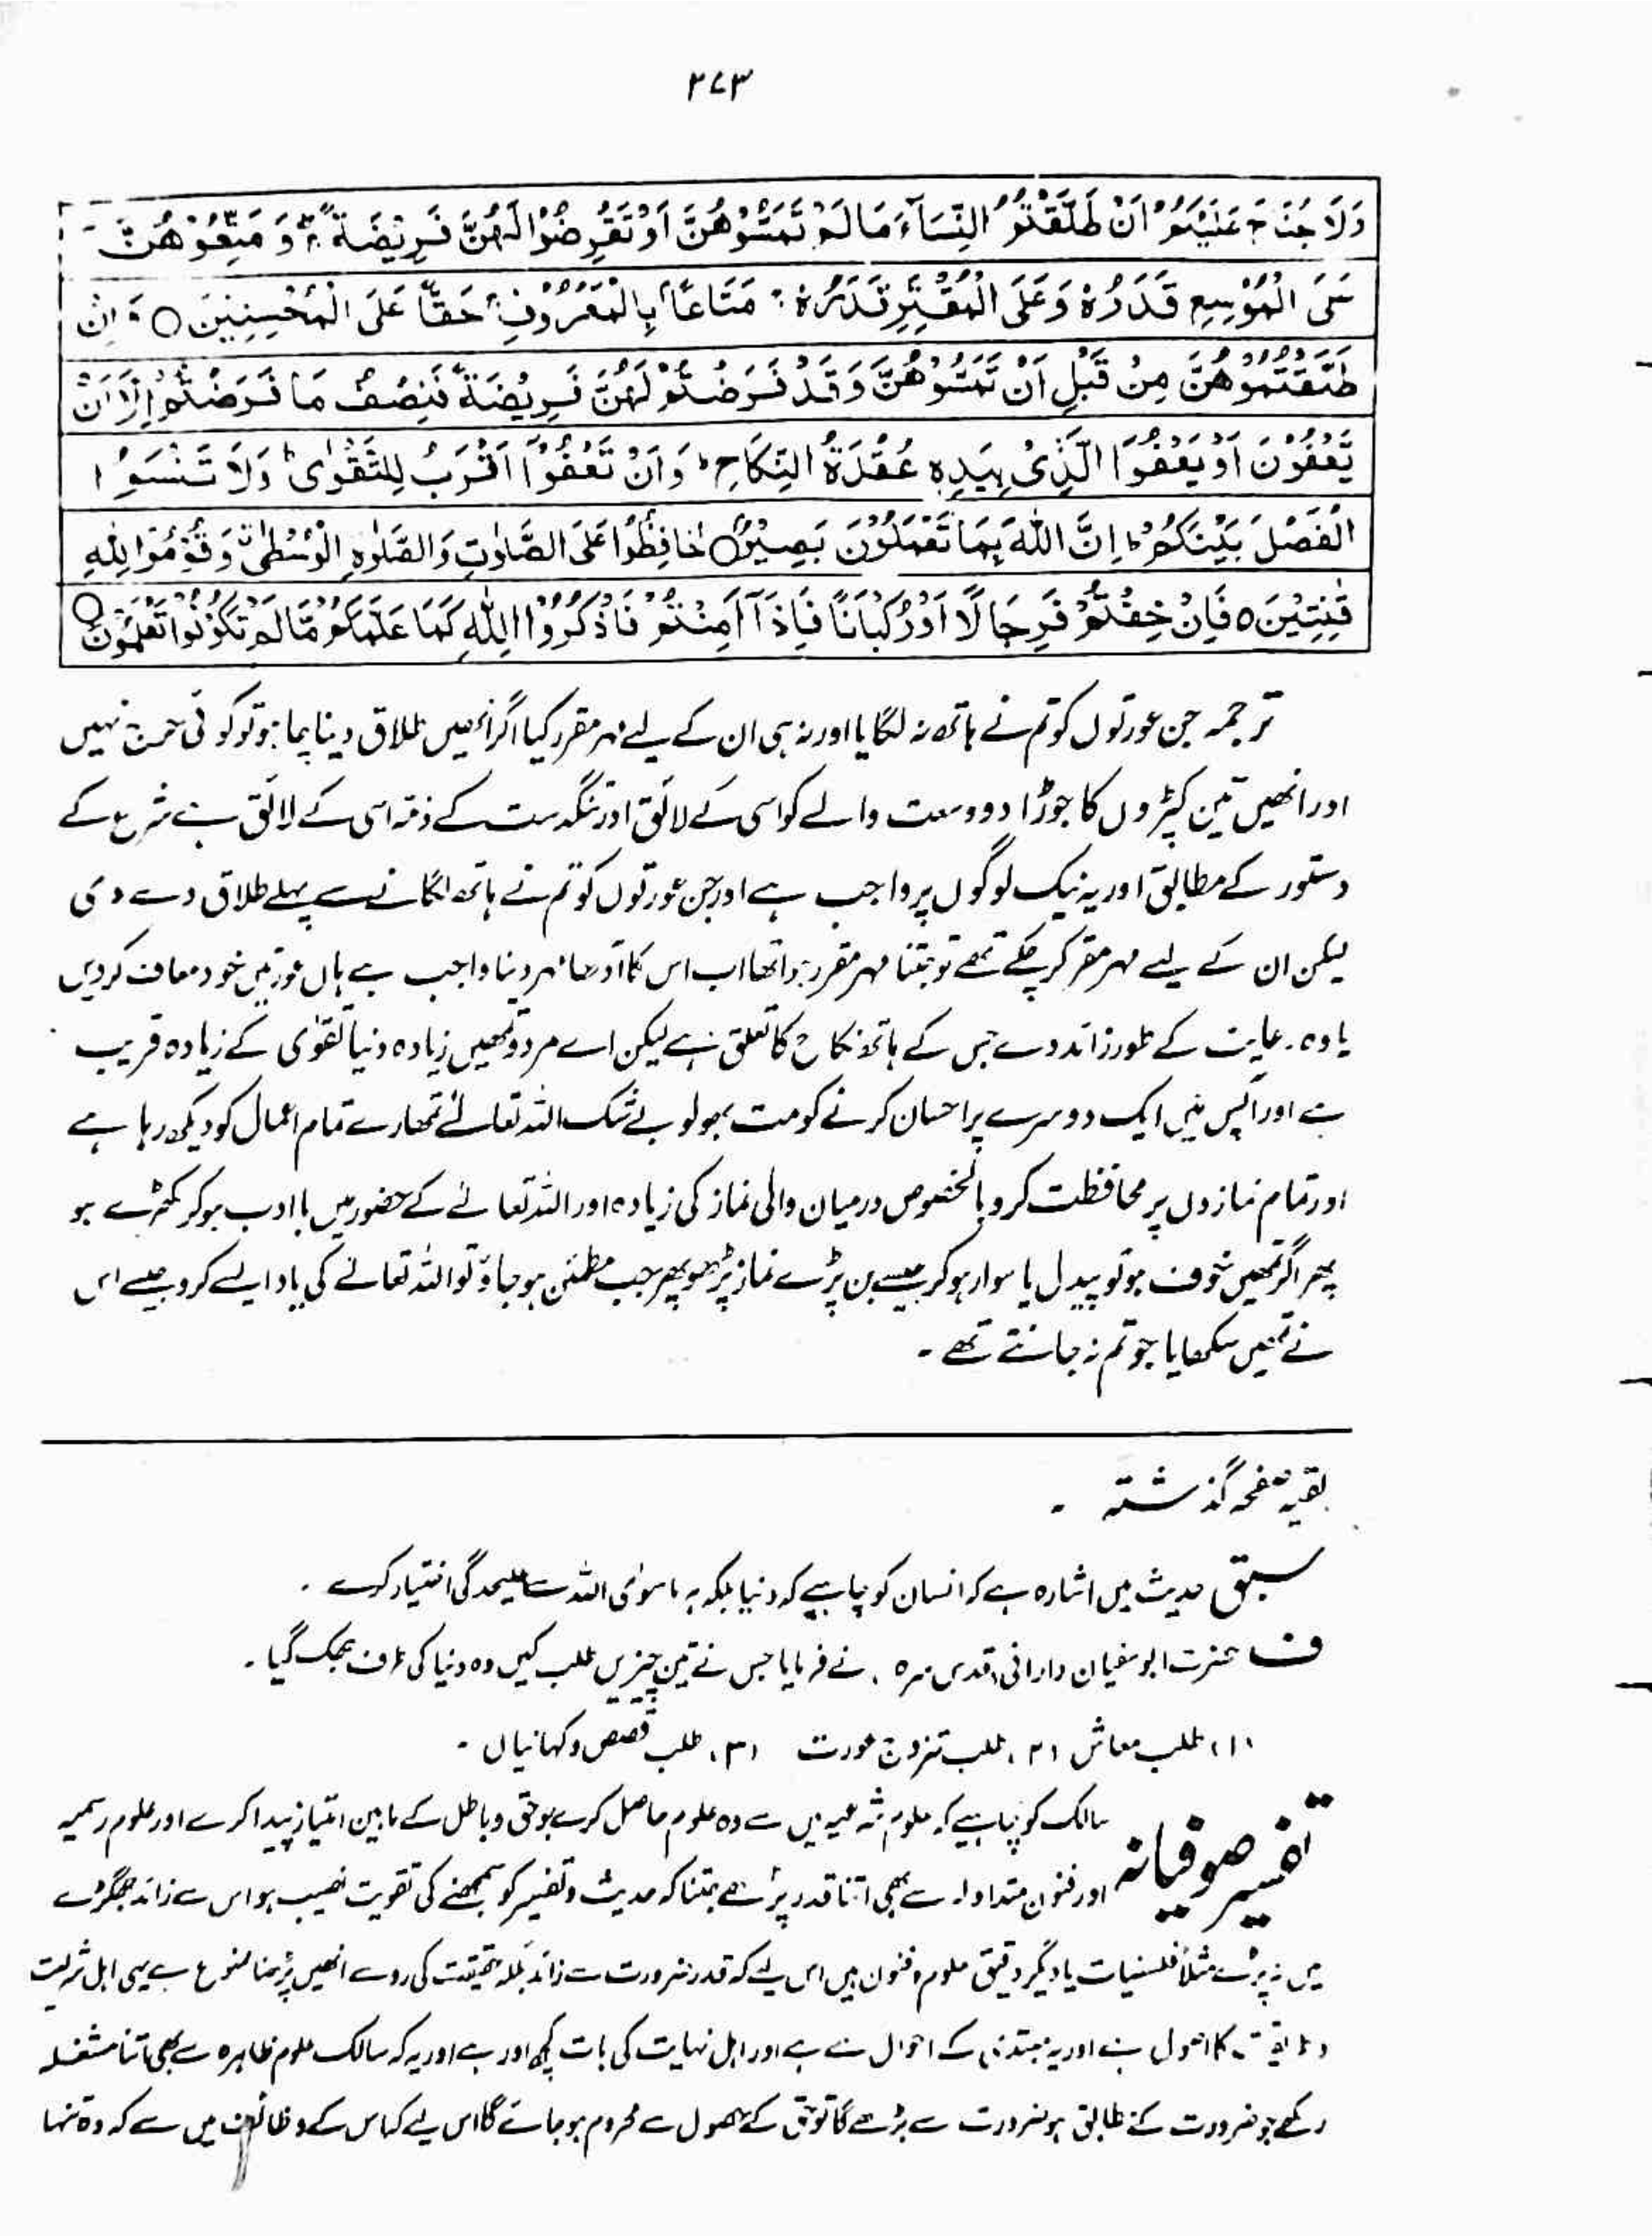 ۳۷۳
وَلَا جُنَاحَ عَلَيْكُمْ اَنْ طَلَّقْتُمُ النِّسَآءَ مَا لَمْ تَمَسُّوْهُنَّ اَوْ تَفْرِضُوْا لَهُنَّ فَرِيْضَةً ۚ وَ مَتِّعُوْهُنَّ
عَلَى الْمُوْسِعِ قَدَرُهٗ وَعَلَى الْمُقْتِرِ قَدَرُهٗ ۚ مَتَاعًا بِالْمَعْرُوْفِ ۚ حَقًّا عَلَى الْمُحْسِنِيْنَ ○ وَاِنْ
طَلَّقْتُمُوْهُنَّ مِنْ قَبْلِ اَنْ تَمَسُّوْهُنَّ وَقَدْ فَرَضْتُمْ لَهُنَّ فَرِيْضَةً فَنِصْفُ مَا فَرَضْتُمْ اِلَّا اَنْ
يَّعْفُوْنَ اَوْ يَعْفُوَا الَّذِىْ بِيَدِهٖ عُقْدَةُ النِّكَاحِ ؕ وَاَنْ تَعْفُوْٓا اَقْرَبُ لِلتَّقْوٰى ؕ وَلَا تَنْسَوُا
الْفَضْلَ بَيْنَكُمْ ؕ اِنَّ اللّٰهَ بِمَا تَعْمَلُوْنَ بَصِيْرٌ ○ حَافِظُوْا عَلَى الصَّلَوٰتِ وَالصَّلٰوةِ الْوُسْطٰى وَقُوْمُوْا لِلّٰهِ
قٰنِتِيْنَ ○ فَاِنْ خِفْتُمْ فَرِجَالًا اَوْ رُكْبَانًا فَاِذَآ اَمِنْتُمْ فَاذْكُرُوا اللّٰهَ كَمَا عَلَّمَكُمْ مَّا لَمْ تَكُوْنُوْا تَعْلَمُوْنَ ○
ترجمہ جن عورتوں کو تم نے ہاتھ نہ لگایا اور نہ ہی ان کے لیے مہر مقرر کیا اگر انھیں طلاق دینا چاہو تو کوئی حرج نہیں
اور انھیں تین کپڑوں کا جوڑا دو وسعت والے کو اسی کے لائق اور تنگدست کے ذمہ اسی کے لائق ہے شرع کے
دستور کے مطابق اور یہ نیک لوگوں پر واجب ہے اور جن عورتوں کو تم نے ہاتھ لگانے سے پہلے طلاق دے دی
لیکن ان کے لیے مہر مقرر کر چکے تھے تو جتنا مہر مقرر ہوا تھا اب اس کا آدھا مہر دینا واجب ہے ہاں عورتیں خود معاف کر دیں
یا وہ رعایت کے طور زائد دے جس کے ہاتھ نکاح کا تعلق ہے لیکن اے مردو تمھیں زیادہ دنیا تقوٰی کے زیادہ قریب
ہے اور آپس میں ایک دوسرے پر احسان کرنے کو مت بھولو بے شک اللہ تعالےٰ تمھارے تمام اعمال کو دیکھ رہا ہے
اور تمام نمازوں پر محافظت کرو بالخصوص درمیان والی نماز کی زیادہ اور اللہ تعالےٰ کے حضور میں با ادب ہو کر کھڑے ہو
پھر اگر تمھیں خوف ہو تو پیدل یا سوار ہو کر جیسے بن پڑے نماز پڑھو پھر جب مطمئن ہو جاؤ تو اللہ تعالےٰ کی یاد ایسے کرو جیسے اس
نے تمھیں سکھایا جو تم نہ جانتے تھے ۔
بقیہ صفحہ گذشتہ ۔
سبق حدیث میں اشارہ ہے کہ انسان کو چاہیے کہ دنیا بلکہ ہر ماسوٰی اللہ سے علیحدگی اختیار کرے ۔
ف حضرت ابو سفیان دارانی قدس سرہ ، نے فرمایا جس نے تین چیزیں طلب کیں وہ دنیا کی طرف جھک گیا ۔
(۱) طلب معاش (۲) طلب تزوج عورت (۳) طلب قصص و کہانیاں ۔
تفسیر صوفیانہ سالک کو چاہیے کہ علوم شرعیہ میں سے وہ علوم حاصل کرے جو حق و باطل کے مابین امتیاز پیدا کرے اور علوم رسمیہ
اور فنون متداولہ سے بھی اتنا قدر پڑھے جتنا کہ حدیث و تفسیر کو سمجھنے کی تقویت نصیب ہو اس سے زائد جھگڑے
میں نہ پڑے مثلاً فلسفیات یا دیگر دقیق علوم و فنون میں اس لیے کہ قدر ضرورت سے زائد بلکہ حقیقت کی روسے انھیں پڑھنا ممنوع ہے یہی اہل شریعت
و طریقت کا اصول ہے اور یہ مبتدی کے احوال سے ہے اور اہل نہایت کی بات کچھ اور ہے اور یہ کہ سالک علوم ظاہرہ سے بھی اتنا مشغلہ
رکھے جو ضرورت کے مطابق ہو ضرورت سے بڑھے گا تو حق کے حصول سے محروم ہو جائے گا اس لیے کہ اس کے وظائف میں سے کہ وہ تنہا